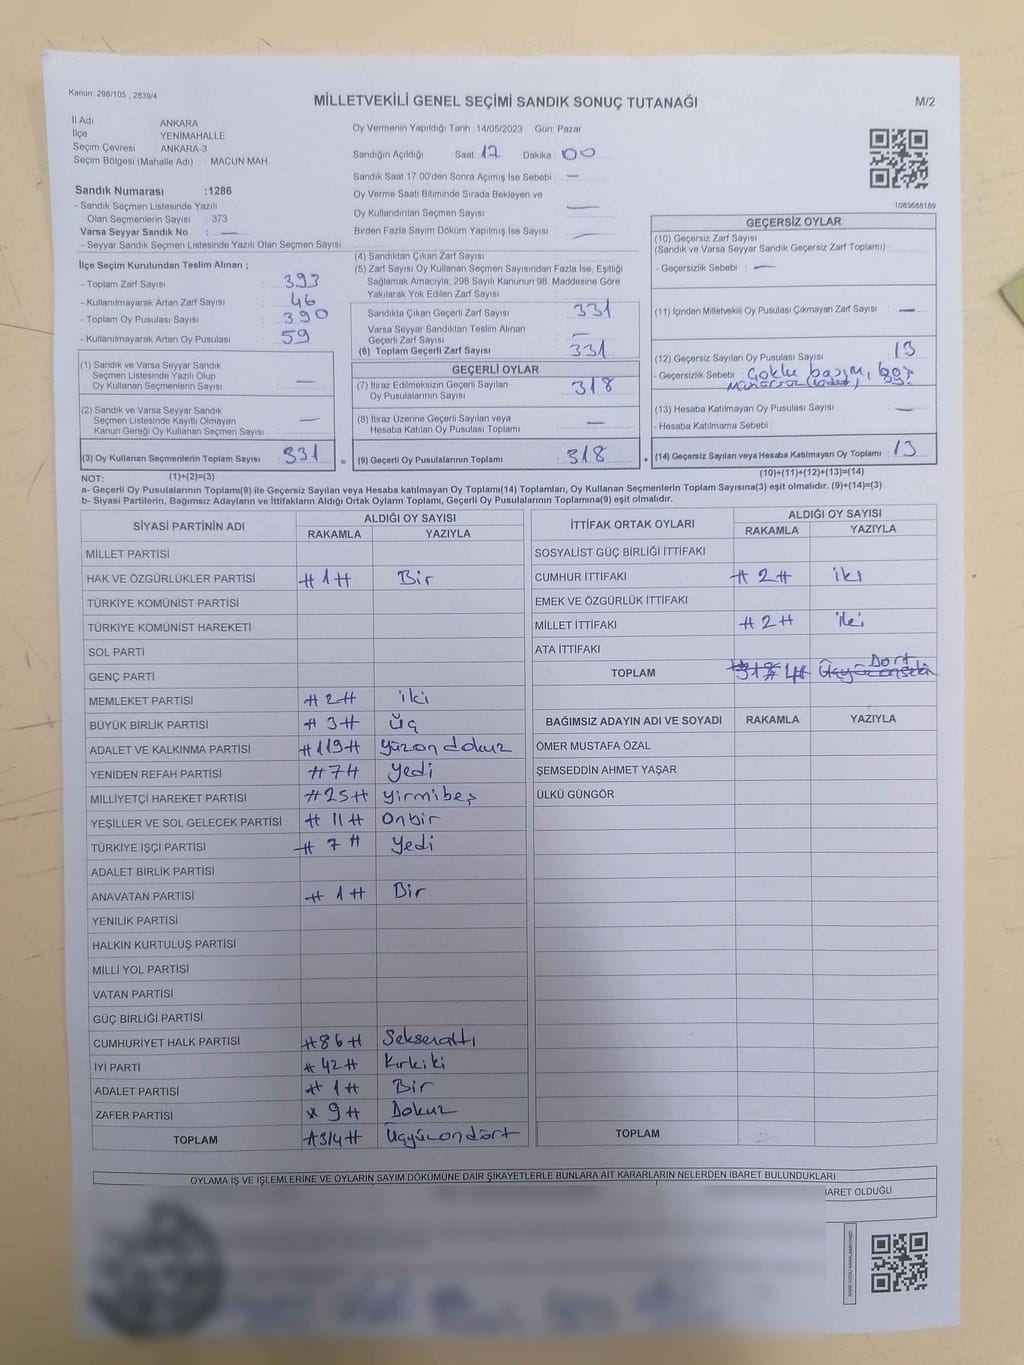 Kanun: 298/105 , 2839/4
MİLLETVEKİLİ GENEL SEÇİMİ SANDIK SONUÇ TUTANAĞI
M/2
İl Adı ANKARA
İlçe YENİMAHALLE
Seçim Çevresi : ANKARA-3
Seçim Bölgesi (Mahalle Adı) : MACUN MAH.
Sandık Numarası :1286
- Sandık Seçmen Listesinde Yazılı
Olan Seçmenlerin Sayısı : 373
Varsa Seyyar Sandık No : —
- Seyyar Sandık Seçmen Listesinde Yazılı Olan Seçmen Sayısı:
İlçe Seçim Kurulundan Teslim Alınan ;
- Toplam Zarf Sayısı : 393
- Kullanılmayarak Artan Zarf Sayısı : 46
- Toplam Oy Pusulası Sayısı : 390
- Kullanılmayarak Artan Oy Pusulası : 59
(1) Sandık ve Varsa Seyyar Sandık
Seçmen Listesinde Yazılı Olup
Oy Kullanan Seçmenlerin Sayısı : —
(2) Sandık ve Varsa Seyyar Sandık
Seçmen Listesinde Kayıtlı Olmayan
Kanun Gereği Oy Kullanan Seçmen Sayısı : —
(3) Oy Kullanan Seçmenlerin Toplam Sayısı : 331
Oy Vermenin Yapıldığı Tarih :14/05/2023 Gün: Pazar
Sandığın Açıldığı Saat 17 Dakika : 00
Sandık Saat 17.00'den Sonra Açımış İse Sebebi : —
Oy Verme Saati Bitiminde Sırada Bekleyen ve
Oy Kullandırılan Seçmen Sayısı : —
Birden Fazla Sayım Döküm Yapılmış İse Sayısı : —
(4) Sandıktan Çıkan Zarf Sayısı :
(5) Zarf Sayısı Oy Kullanan Seçmen Sayısından Fazla İse, Eşitliği
Sağlamak Amacıyla, 298 Sayılı Kanunun 98. Maddesine Göre
Yakılarak Yok Edilen Zarf Sayısı :
Sandıkta Çıkan Geçerli Zarf Sayısı : 331
Varsa Seyyar Sandıktan Teslim Alınan
Geçerli Zarf Sayısı : —
(6) Toplam Geçerli Zarf Sayısı : 331
GEÇERLİ OYLAR
(7) İtiraz Edilmeksizin Geçerli Sayılan
Oy Pusulalarının Sayısı : 318
(8) İtiraz Üzerine Geçerli Sayılan veya
Hesaba Katılan Oy Pusulası Toplamı : —
= (9) Geçerli Oy Pusulalarının Toplamı : 318
1083668189
GEÇERSİZ OYLAR
(10) Geçersiz Zarf Sayısı
(Sandık ve Varsa Seyyar Sandık Geçersiz Zarf Toplamı) :
- Geçersizlik Sebebi : —
(11) İçinden Milletvekili Oy Pusulası Çıkmayan Zarf Sayısı : —
(12) Geçersiz Sayılan Oy Pusulası Sayısı : 13
- Geçersizlik Sebebi : Çoklu basım,
(13) Hesaba Katılmayan Oy Pusulası Sayısı : —
- Hesaba Katılmama Sebebi :
+ (14) Geçersiz Sayılan veya Hesaba Katılmayan Oy Toplamı : 13
NOT: (1)+(2)=(3) (10)+(11)+(12)+(13)=(14)
a- Geçerli Oy Pusulalarının Toplamı(9) ile Geçersiz Sayılan veya Hesaba katılmayan Oy Toplamı(14) Toplamları, Oy Kullanan Seçmenlerin Toplam Sayısına(3) eşit olmalıdır. (9)+(14)=(3)
b- Siyasi Partilerin, Bağımsız Adayların ve İttifakların Aldığı Ortak Oyların Toplamı, Geçerli Oy Pusulalarının Toplamına(9) eşit olmalıdır.
SİYASİ PARTİNİN ADI ALDIĞI OY SAYISI
RAKAMLA YAZIYLA
MİLLET PARTİSİ
HAK VE ÖZGÜRLÜKLER PARTİSİ #1# Bir
TÜRKİYE KOMÜNİST PARTİSİ
TÜRKİYE KOMÜNİST HAREKETİ
SOL PARTİ
GENÇ PARTİ
MEMLEKET PARTİSİ #2# iki
BÜYÜK BİRLİK PARTİSİ #3# üç
ADALET VE KALKINMA PARTİSİ #119# yüzondokuz
YENİDEN REFAH PARTİSİ #7# yedi
MİLLİYETÇİ HAREKET PARTİSİ #25# yirmibeş
YEŞİLLER VE SOL GELECEK PARTİSİ #11# Onbir
TÜRKİYE İŞÇİ PARTİSİ #7# Yedi
ADALET BİRLİK PARTİSİ
ANAVATAN PARTİSİ #1# Bir
YENİLİK PARTİSİ
HALKIN KURTULUŞ PARTİSİ
MİLLİ YOL PARTİSİ
VATAN PARTİSİ
GÜÇ BİRLİĞİ PARTİSİ
CUMHURİYET HALK PARTİSİ #86# Seksenaltı
İYİ PARTİ #42# Kırkiki
ADALET PARTİSİ #1# Bir
ZAFER PARTİSİ #9# Dokuz
TOPLAM #314# Üçyüzondört
İTTİFAK ORTAK OYLARI ALDIĞI OY SAYISI
RAKAMLA YAZIYLA
SOSYALİST GÜÇ BİRLİĞİ İTTİFAKI
CUMHUR İTTİFAKI #2# iki
EMEK VE ÖZGÜRLÜK İTTİFAKI
MİLLET İTTİFAKI #2# iki
ATA İTTİFAKI
TOPLAM #4# Dört
BAĞIMSIZ ADAYIN ADI VE SOYADI RAKAMLA YAZIYLA
ÖMER MUSTAFA ÖZAL
ŞEMSEDDİN AHMET YAŞAR
ÜLKÜ GÜNGÖR
TOPLAM
OYLAMA İŞ VE İŞLEMLERİNE VE OYLARIN SAYIM DÖKÜMÜNE DAİR ŞİKAYETLERLE BUNLARA AİT KARARLARIN NELERDEN İBARET BULUNDUKLARI
İBARET OLDUĞU